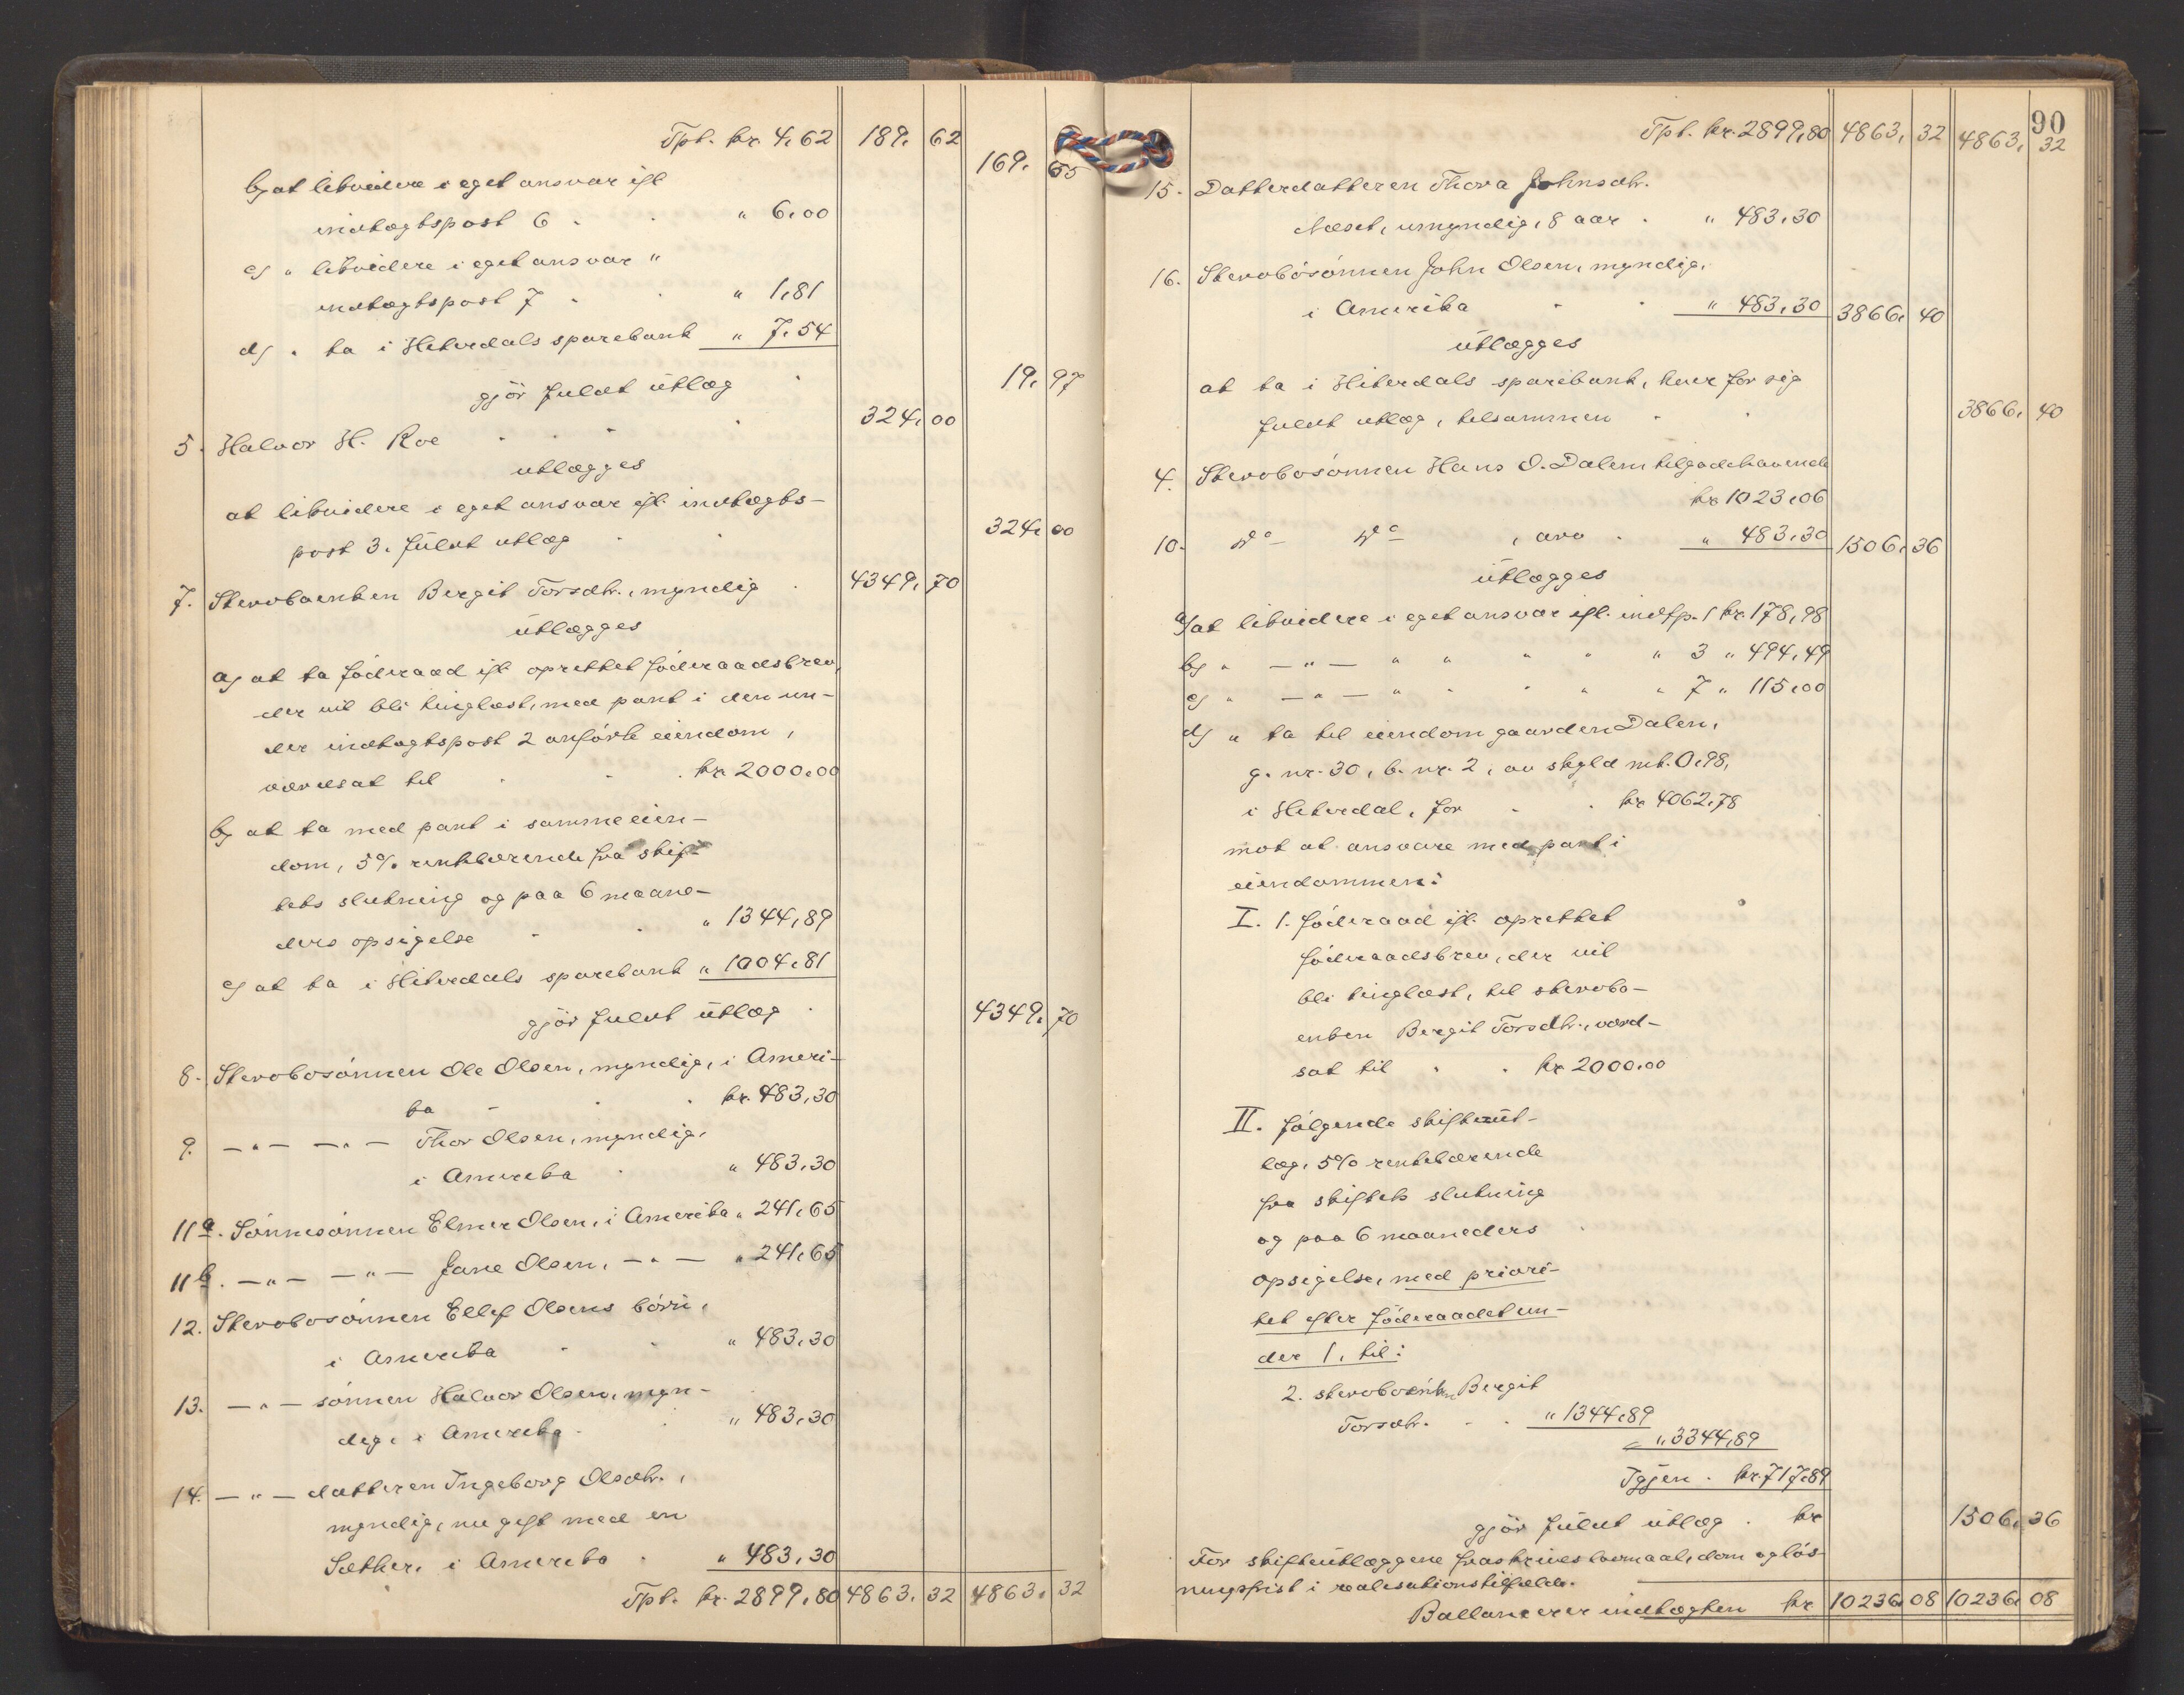 Tpt. kr. 4,62 189, 62
169, 65
b) at likvidere i eget ansvar ifl.
indtægtspost 6 . . " 6,00
c) " likvidere i eget ansvar "
indtægtspost 7 . . " 1,81
d) " ta i Hiterdals sparebank " 7,54
gjör fuldt utlæg . 19, 97
5. Halvor H. Roe . . . . 324, 00
utlægges
at likvidere i eget ansvar ifl. indtægts-
post 3. Fuldt utlæg . . 324, 00
7. Stervboenken Bergit Torsdtr., myndig . 4349, 70
utlægges
a) at ta föderaad ifl. oprettet föderaadsbrev,
der vil bli tinglæst, med pant i den un-
der indtægtspost 2 anförte eiendom,
værdsat til . . . kr. 2000,00
b) at ta med pant i samme eien-
dom, 5% rentebærende fra skif-
tets slutning og paa 6 maane-
ders opsigelse . . " 1344,89
c) at ta i Hiterdals sparebank " 1004,81
gjör fuldt utlæg . 4349, 70
8. Stervbosönnen Ole Olsen, myndig, i Ameri-
ka . . . kr. 483,30
9. — " — — " — Thor Olsen, myndig,
i Amerika . " 483,30
11a. Sönnesönnen Elmer Olsen, i Amerika " 241,65
11b. — " — — " — Jane Olsen, — " — " 241,65
12. Stervbosönnen Ellef Olsens börn,
i Amerika . . " 483,30
13. — " — sönnen Halvor Olsen, myn-
dig, i Amerika . . " 483,30
14. — " — datteren Ingeborg Olsdtr.,
myndig, nu gift med en
Sæther, i Amerika . " 483,30
Tpt. kr. 2899,80 4863, 32 4863, 32
90
Tpt. kr. 2899,80 4863, 32 4863, 32
15. Datterdatteren Thora Johnsdtr.
Næset, umyndig, 8 aar . " 483,30
16. Stervbosönnen John Olsen, myndig,
i Amerika . . " 483,30 3866, 40
utlægges
at ta i Hiterdals sparebank, hver for sig
fuldt utlæg, tilsammen . . 3866, 40
4. Stervbosönnen Hans O. Dalens tilgodehavende
kr. 1023,06
10. Do Do , arv . " 483,30 1506, 36
utlægges
a) at likvidere i eget ansvar ifl. indtp. 1 kr. 178,98
b) " — " — " " " " " 3 " 494,49
c) " — " — " " " " " 7 " 115,00
d) " ta til eiendom gaarden Dalen,
g. nr. 30, b. nr. 2, av skyld mk. 0,98,
i Hiterdal, for . . kr. 4062,78
mot at ansvare med pant i
eiendommen:
I. 1. föderaad ifl. oprettet
föderaadsbrev, der vil
bli tinglæst, til stervbo-
enken Bergit Torsdtr., værd-
sat til . . kr. 2000,00
II. fölgende skifteut-
læg, 5% rentebærende
fra skiftets slutning
og paa 6 maaneders
opsigelse, med priori-
tet efter föderaadet un-
der 1, til:
2. stervboenken Bergit
Torsdtr. . . " 1344,89
" 3344,89
Igjen . kr. 717,89
gjör fuldt utlæg . kr 1506, 36
For skifteutlæggene fraskrives lovmaal, dom og lös-
ningsfrist i realisationstilfælde.
Ballancerer indtægten kr 10236, 08 10236, 08